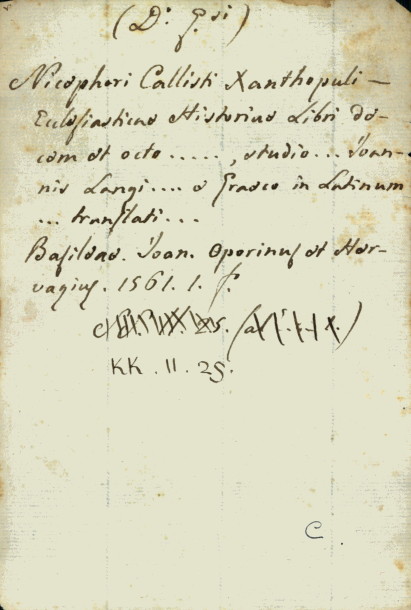 (D: G.si)
Nicephori Callisti Xanthopuli —
Ecclesiasticae Historiae Libri de-
cem et octo ....., studio ... Ioan-
nis Langi .... e Graeco in Latinum
... translati ...
Basileae. Ioan. Oporinus et Her-
vagius. 1561. 1. f.
25. (a
KK. 11. 25.
C.